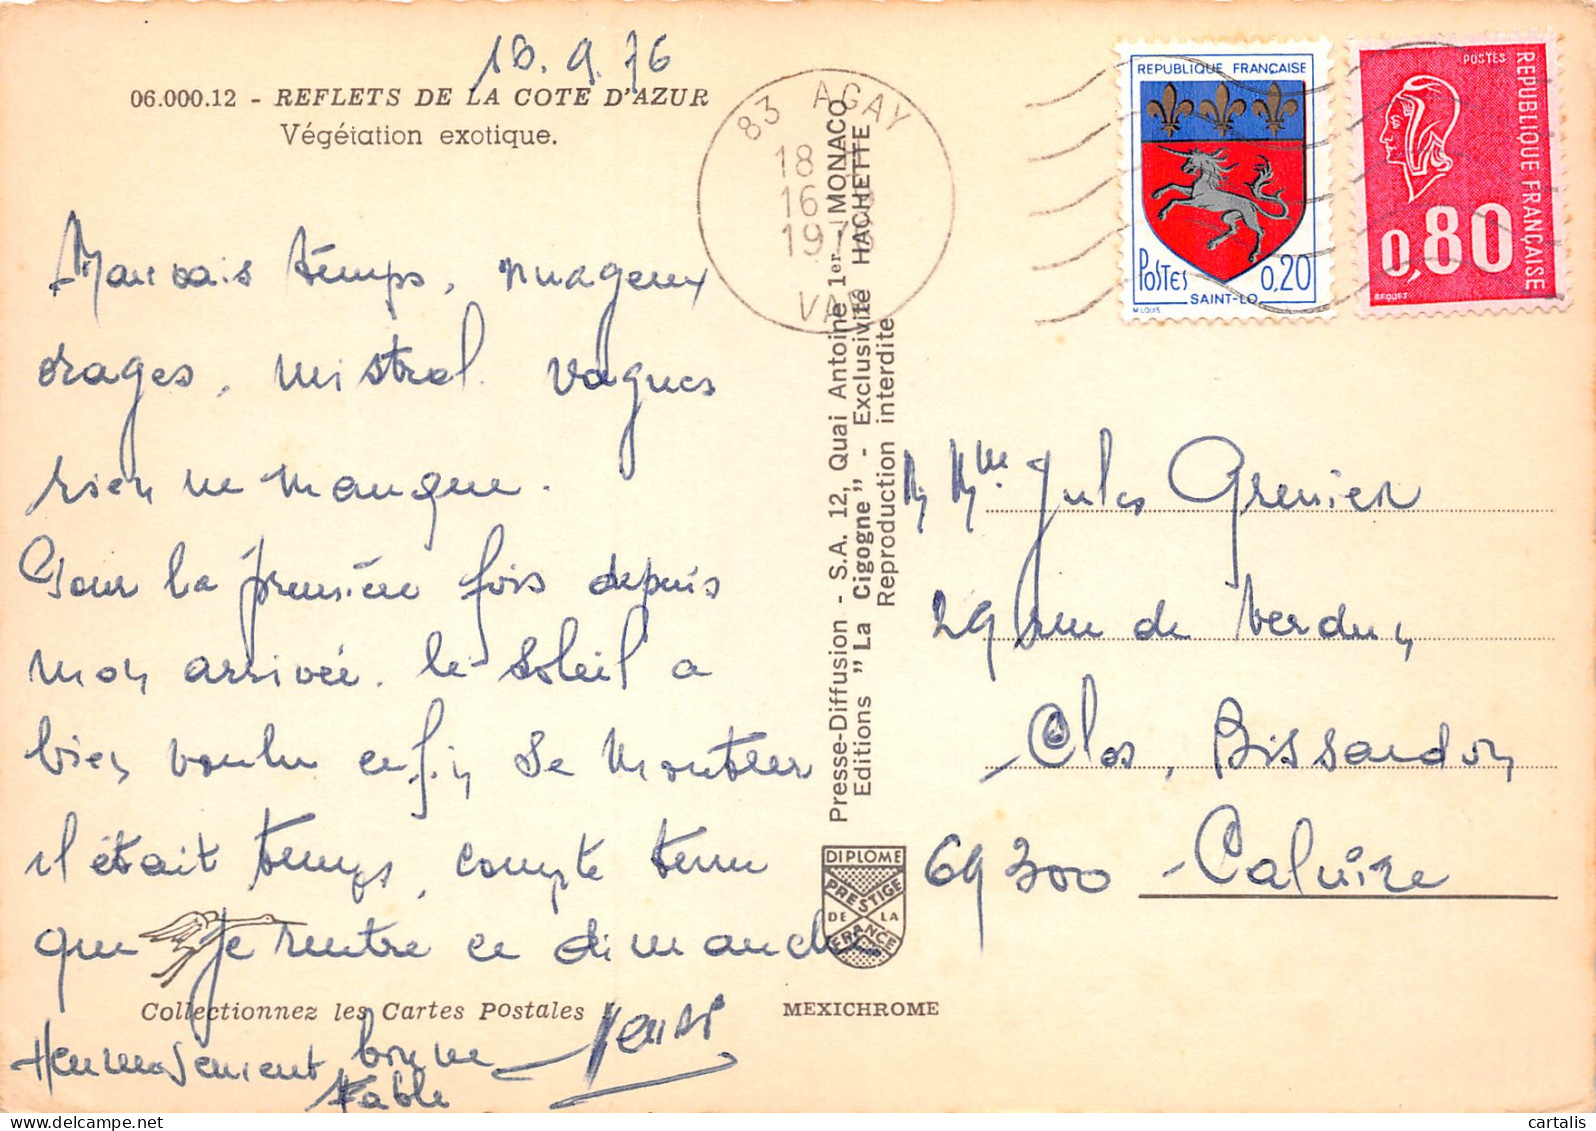 18.9.76
06.000.12 - REFLETS DE LA COTE D'AZUR
Végétation exotique.
Mauvais temps, nuageux
orages, mistral. vagues
rien ne manque.
Pour la première fois depuis
mon arrivée. le soleil a
bien voulu enfin se montrer
il était temps, compte tenu
que je rentre ce dimanche
Collectionnez les Cartes Postales
MEXICHROME
Heureusement bonne
table
83 AGAY
18
16
1976
VAR
REPUBLIQUE FRANÇAISE
POSTES 0,20
SAINT-LO
M LOUIS
POSTES
REPUBLIQUE FRANÇAISE
0,80
BEQUET
Presse-Diffusion - S.A. 12, Quai Antoine 1er - MONACO
Editions "La Cigogne" - Exclusivité HACHETTE
Reproduction interdite
DIPLOME
PRESTIGE
DE LA
FRANCE
M Mme Jules Grenier
29 rue de Verdun
Clos, Bissardon
69300 - Caluire
cartalis